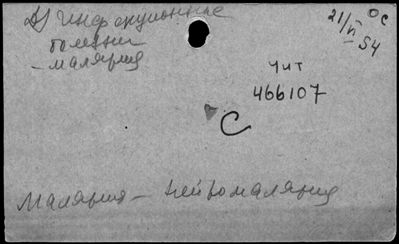 Д) Инфекционные
болезни
- малярия
ОС
21/VI-54
Чит
466107
С
Малярия - Нейромалярия